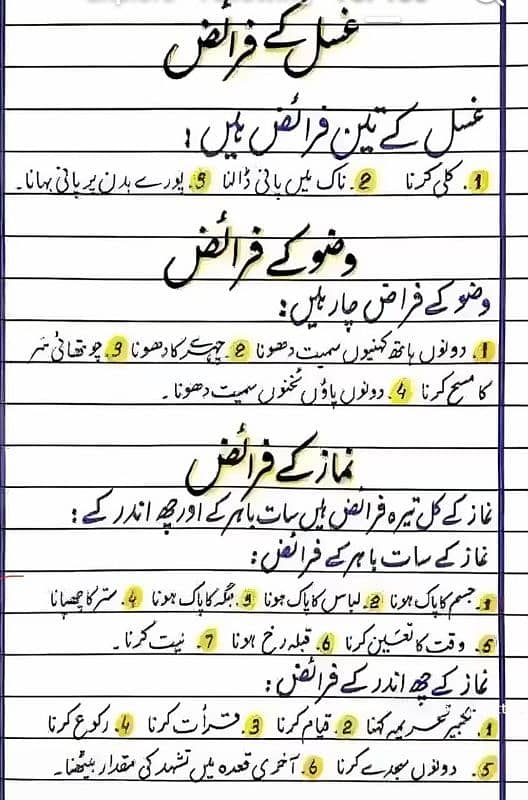 غسل کے فرائض
غسل کے تین فرائض ہیں:
1. کلی کرنا 2. ناک میں پانی ڈالنا 3. پورے بدن پر پانی بہانا۔
وضو کے فرائض
وضو کے فراض چار ہیں:
1. دونوں ہاتھ کہنیوں سمیت دھونا 2. چہرے کا دھونا 3. چوتھائی سر
کا مسح کرنا 4. دونوں پاؤں ٹخنوں سمیت دھونا۔
نماز کے فرائض
نماز کے کل تیرہ فرائض ہیں سات باہر کے اور چھ اندر کے:
نماز کے سات باہر کے فرائض:
1. جسم کا پاک ہونا 2. لباس کا پاک ہونا 3. جگہ کا پاک ہونا 4. ستر کا چھپانا
5. وقت کا تعین کرنا 6. قبلہ رخ ہونا 7. نیت کرنا۔
نماز کے چھ اندر کے فرائض:
1. تکبیر تحریمہ کہنا 2. قیام کرنا 3. قرأت کرنا 4. رکوع کرنا
5. دونوں سجدے کرنا 6. آخری قعدہ میں تشہد کی مقدار بیٹھنا۔